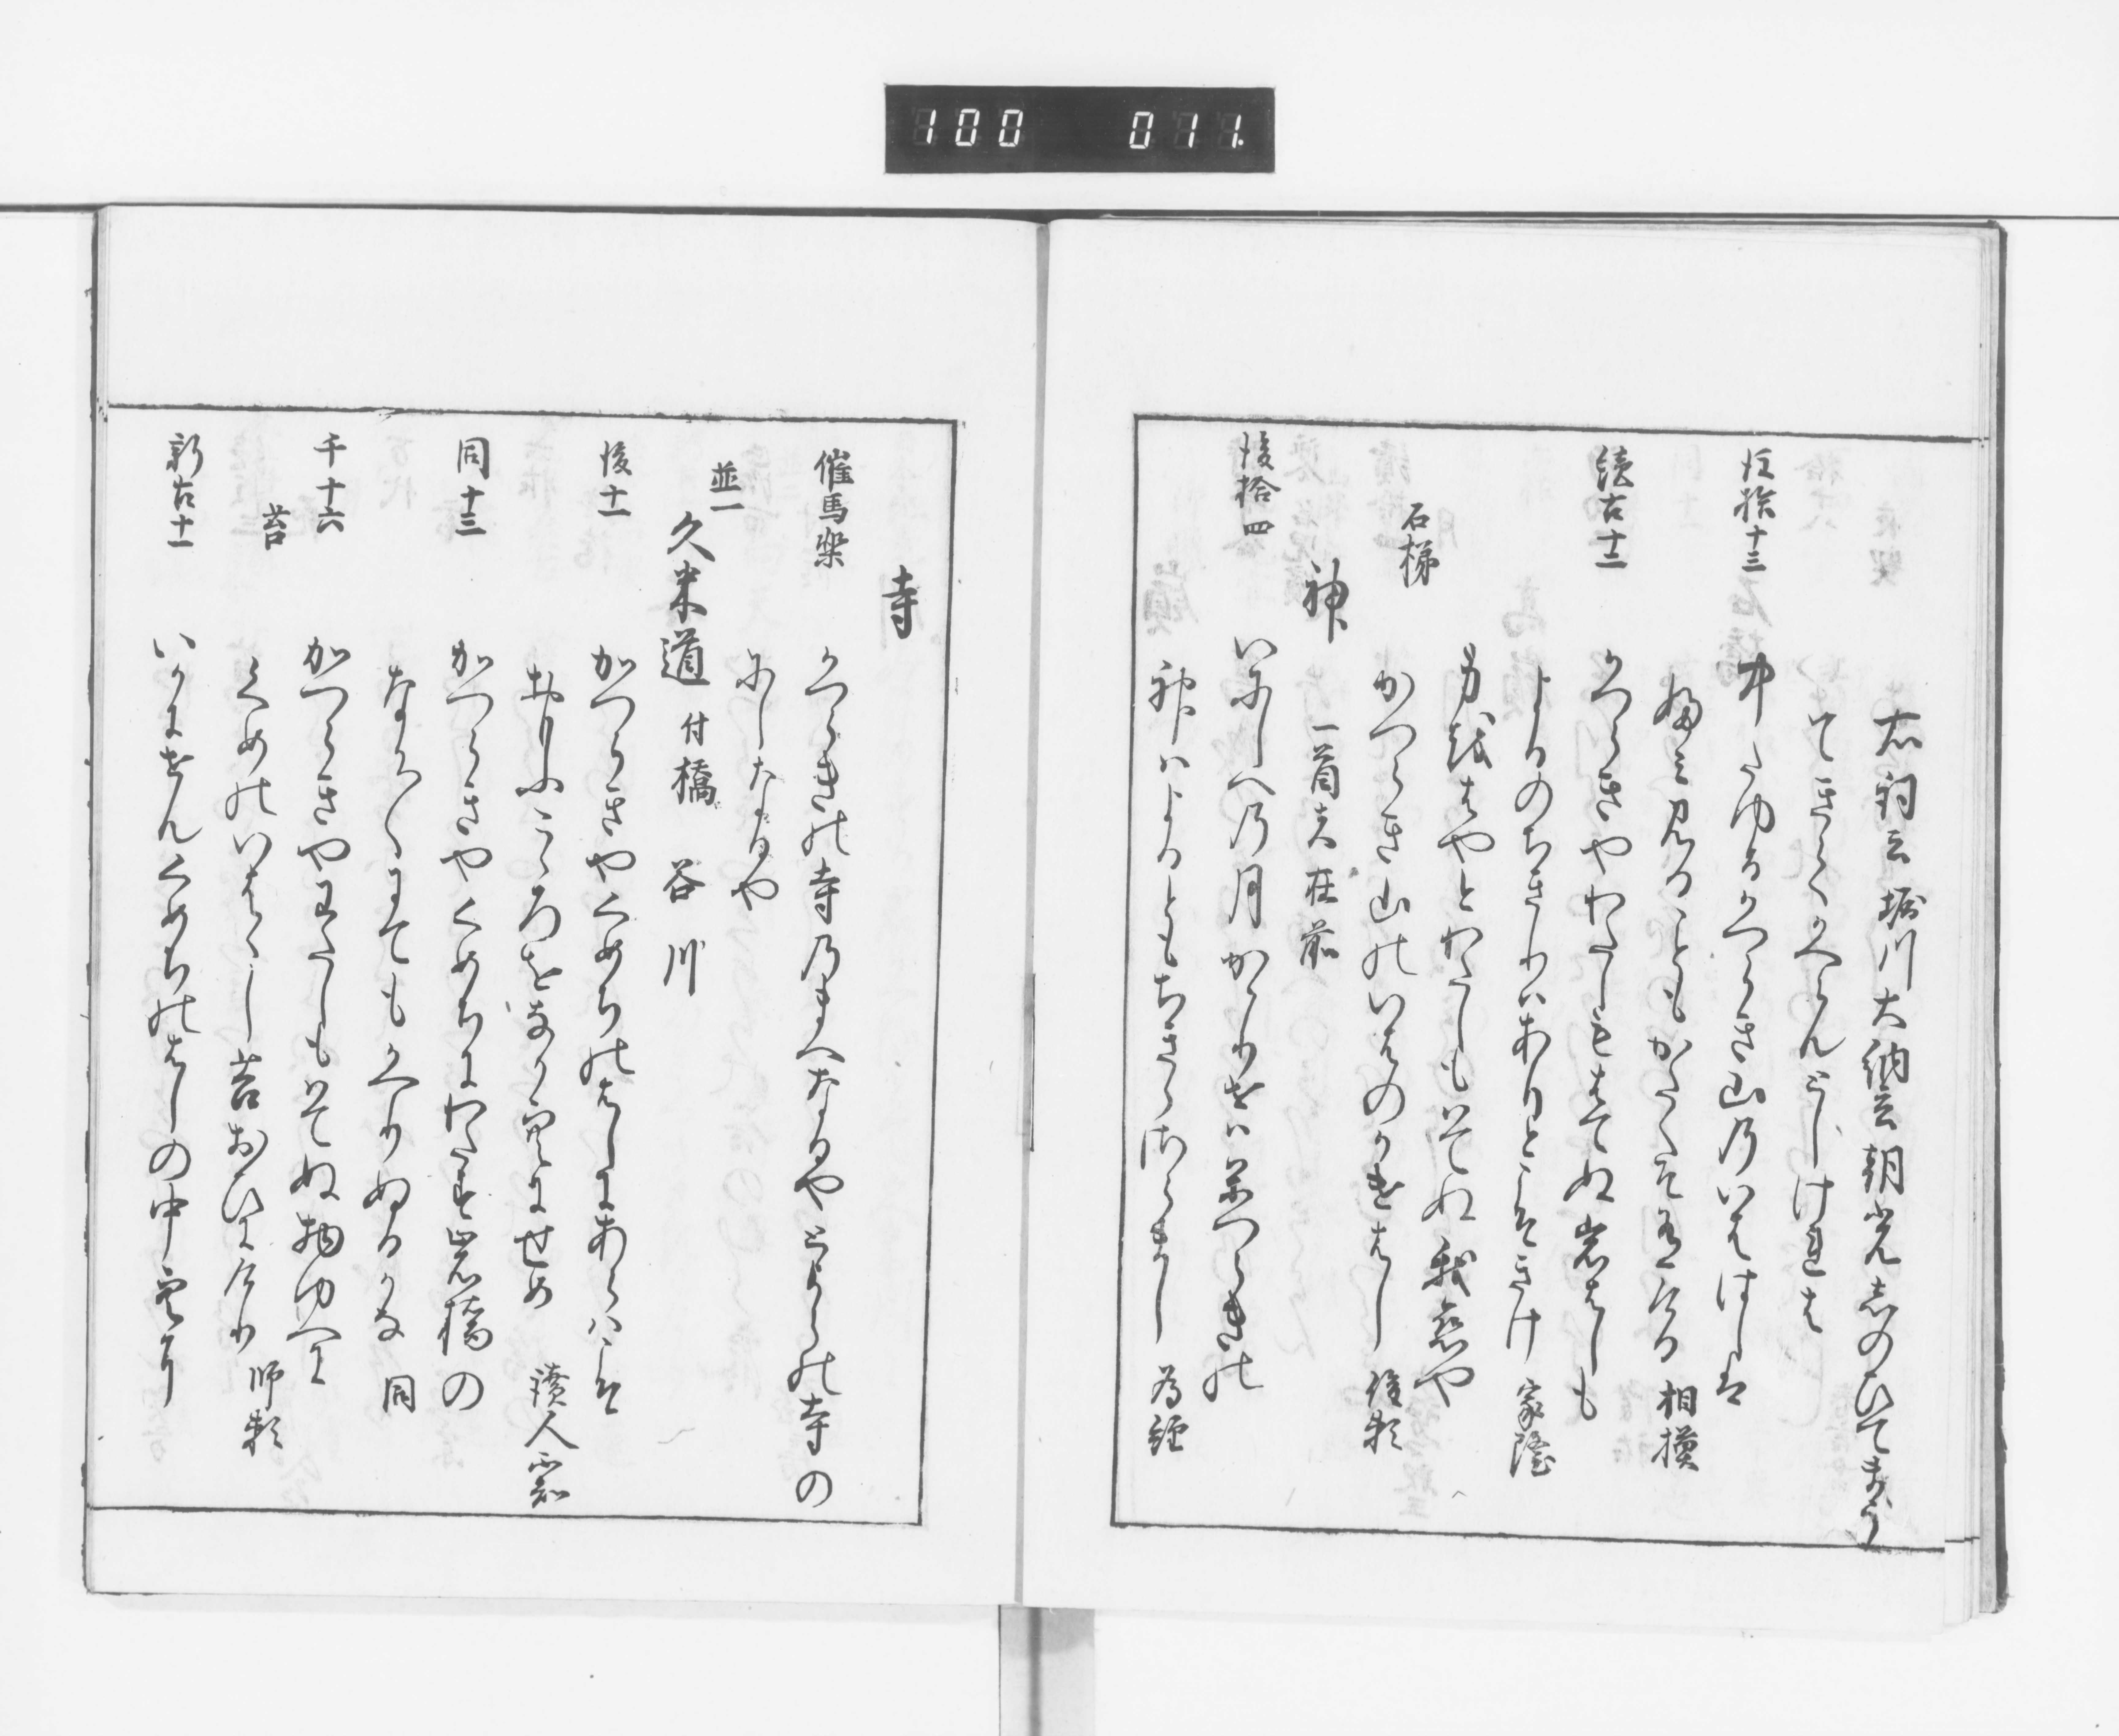 100 011
右詞云堀川大納言朝光志のひてまう
てきてかへらんとしけれは
後拾十三
中たゆるかつらき山乃いははしは
ふみ見ることもかたくそ有ける 相模
続古十二
かつらきやわたしもはてぬ岩はしも
よるのちきりはありとこそきけ 家隆
身越はやとわたしもはてぬ我恋や
石梯
かつらき山のいはのかけはし
神 一首者在前
後拾四
いにしへ乃月かかりせはかつらきの
神はよるともちきらさらまし 為経
寺
催馬楽
かつらきの寺乃まへなるやとよらの寺の
にしなるや
並一
久米道 付橋 谷 川
後十一
かつらきやくめちのはしにあらはこそ
おもふこころを中空にせめ 讀人不知
同十三
かつらきやくめちにわたす岩橋の
なかなかにてもかへりぬるかな 同
千十六
かつらきやわたしもはてぬ物ゆへに
苔
くめのいははし苔おひにけり 師頼
新古十一
いかにせんくめちのはしの中空に